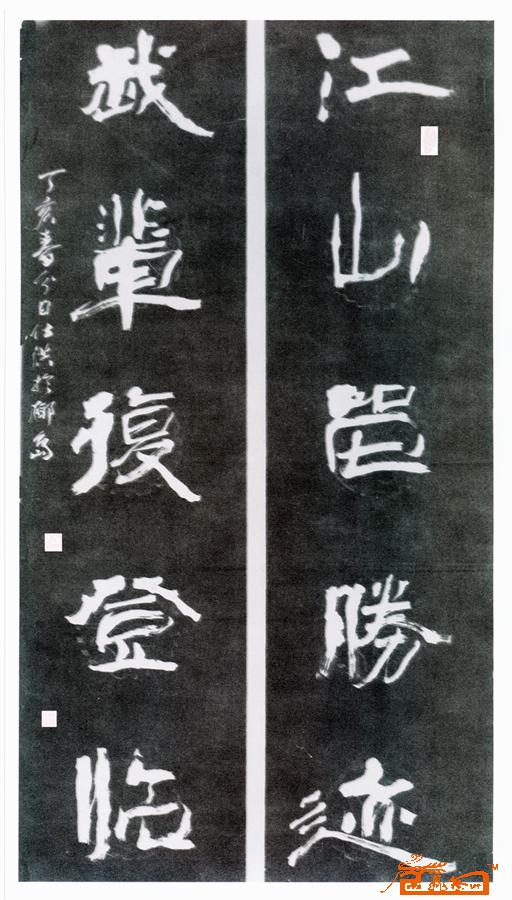 江山留勝迹
我輩復登临
丁亥春分日仕洪於椰岛